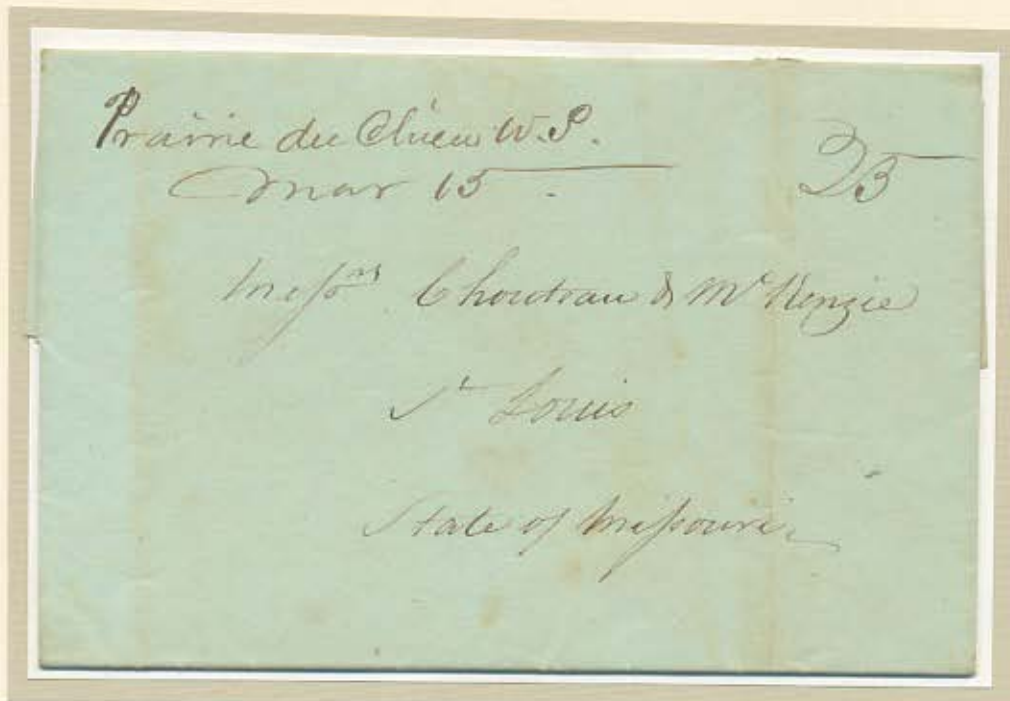 Prairie du Chien W.P.
Mar 15. 25
Messrs Chouteau & McKenzie
St Louis
State of Missouri